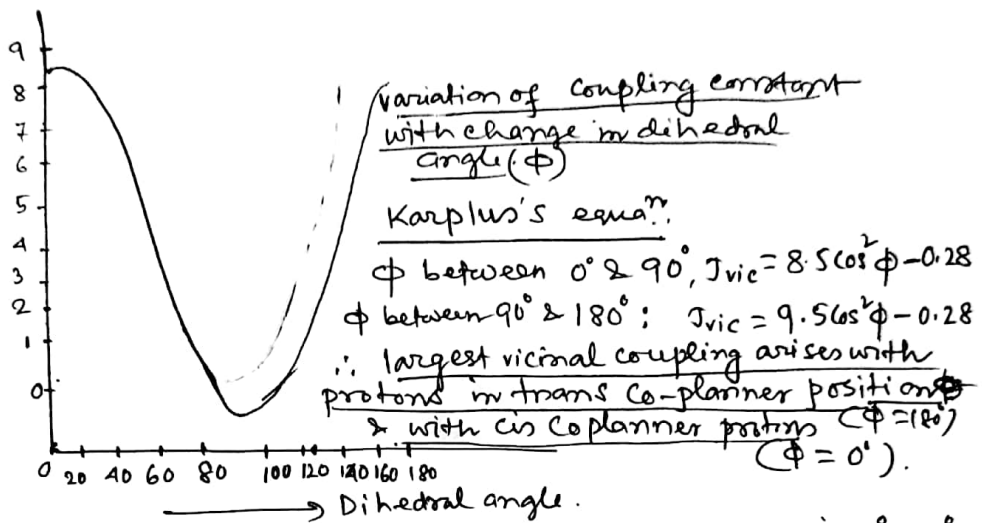 9
8
7
6
5
4
3
2
1
0
0 20 40 60 80 100 120 140 160 180
Dihedral angle.
variation of coupling constant
with change in dihedral
angle (ϕ)
Karplus's equaⁿ.
ϕ between 0° & 90°, Jvic = 8.5cos²ϕ-0.28
ϕ between 90° & 180° : Jvic = 9.5cos²ϕ-0.28
∴ largest vicinal coupling arises with
protons in trans co-planner position
& with cis coplanner protons (ϕ=180°)
(ϕ = 0°).